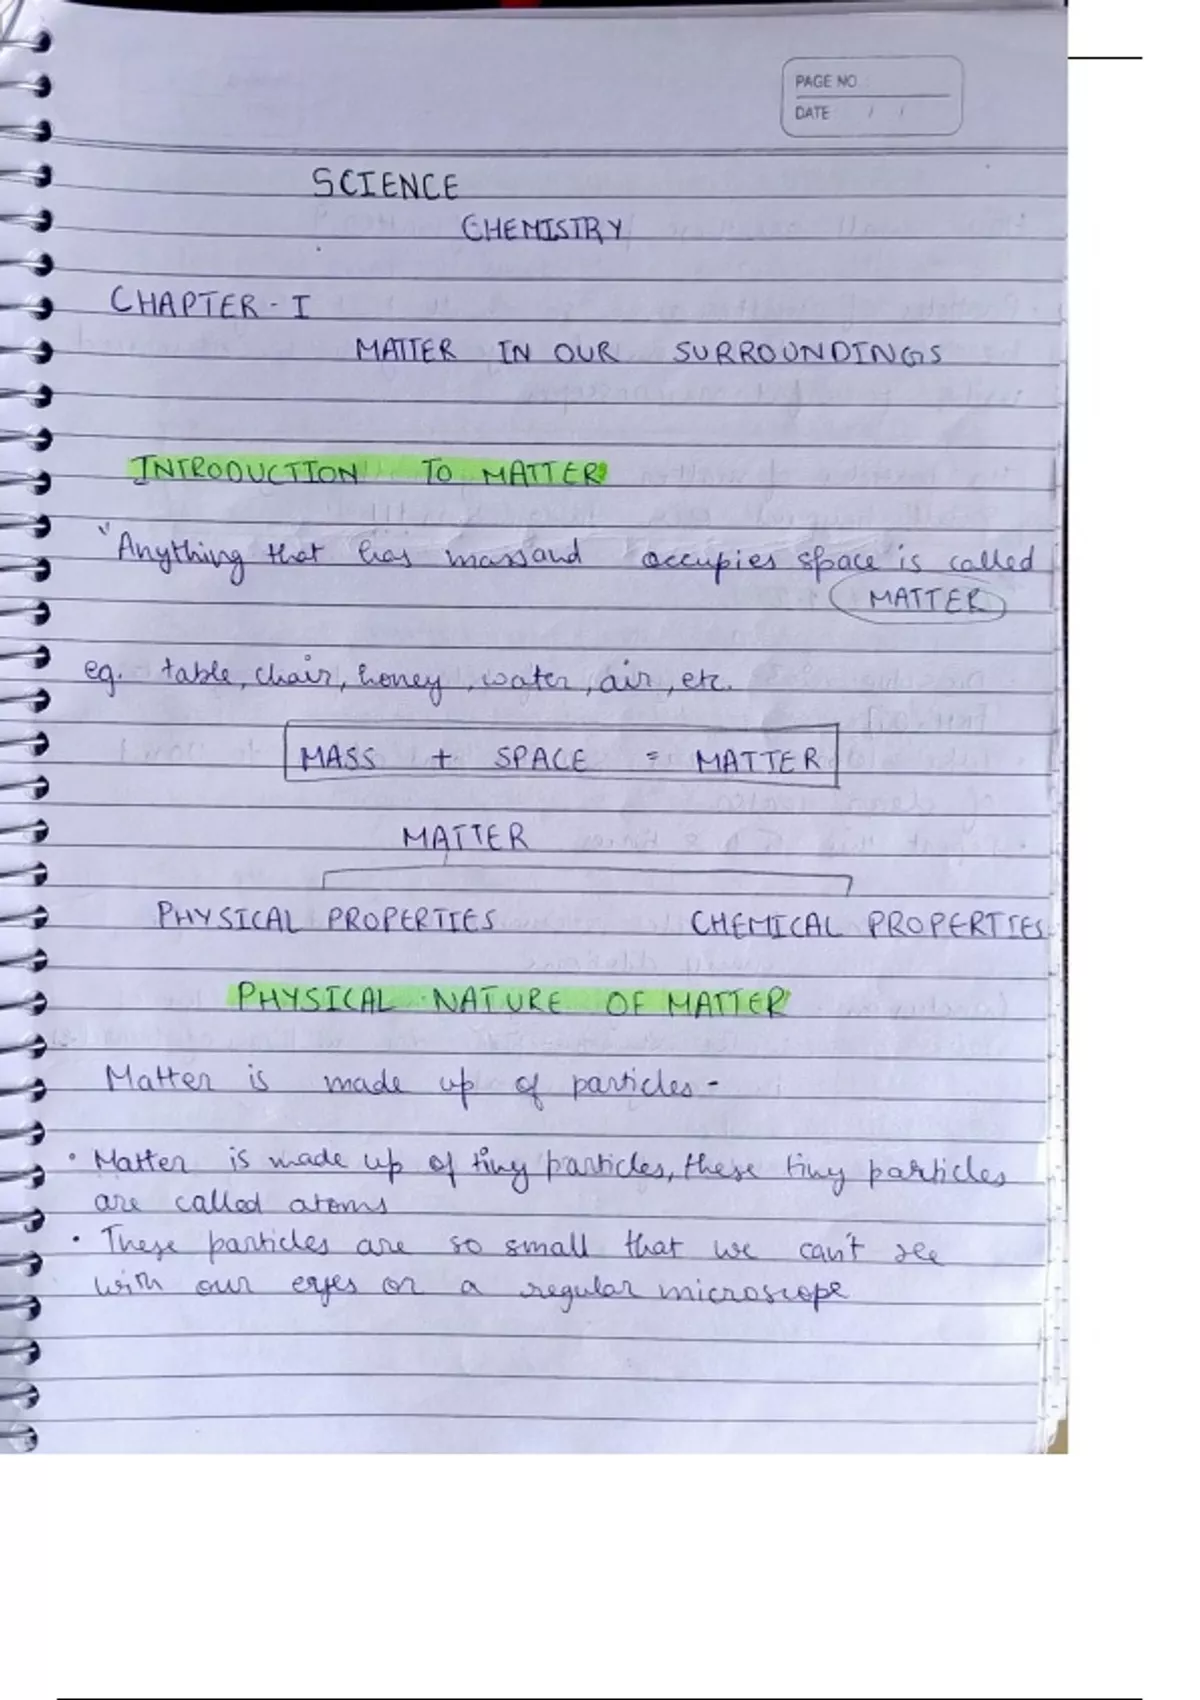 PAGE NO
DATE / /
SCIENCE
CHEMISTRY
CHAPTER - I
MATTER IN OUR SURROUNDINGS
INTRODUCTION TO MATTER
"Anything that has mass and occupies space" is called
MATTER
eg. table, chair, honey, water, air, etc.
MASS + SPACE = MATTER
MATTER
PHYSICAL PROPERTIES CHEMICAL PROPERTIES
PHYSICAL NATURE OF MATTER
Matter is made up of particles -
• Matter is made up of tiny particles, these tiny particles
are called atoms
• These particles are so small that we can't see
with our eyes or a regular microscope